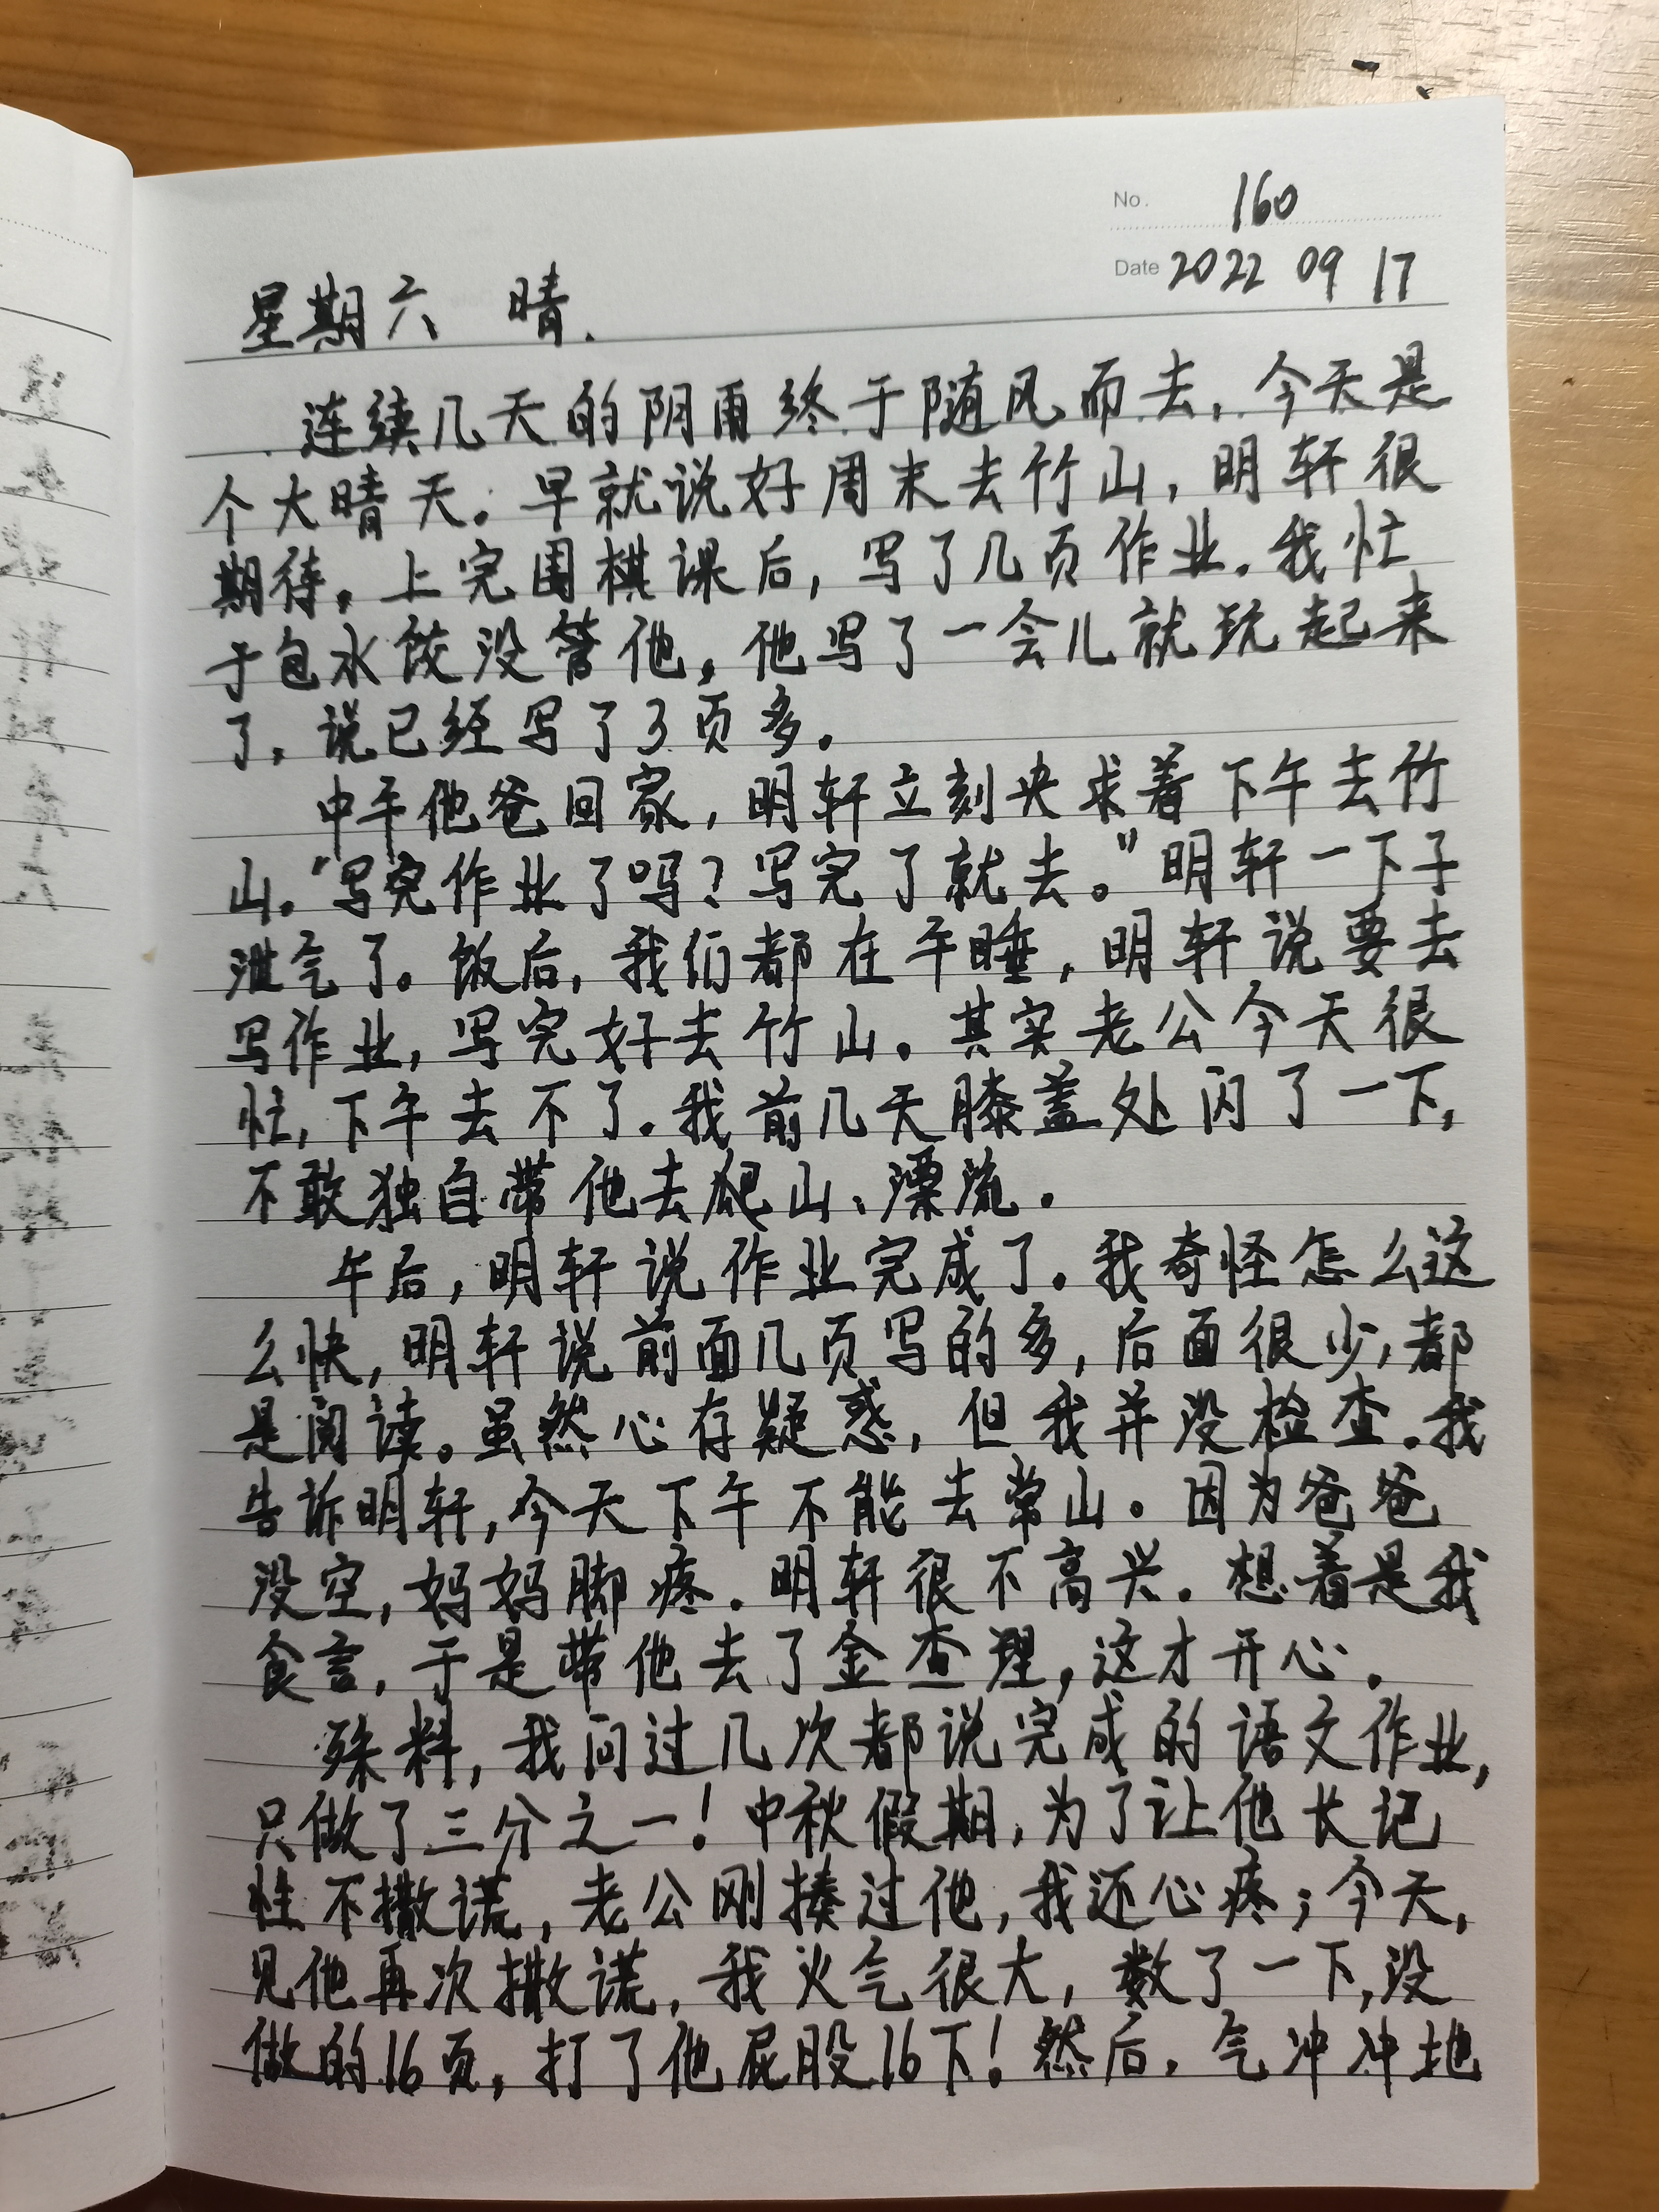 No. 160
Date 2022 09 17
星期六 晴.
连续几天的阴雨终于随风而去,今天是
个大晴天。早就说好周末去竹山,明轩很
期待。上完围棋课后,写了几页作业.我忙
于包水饺没管他。他写了一会儿就玩起来
了,说已经写了3页多。
中午他爸回家,明轩立刻央求着下午去竹
山。"写完作业了吗?写完了就去。"明轩一下子
泄气了。饭后,我们都在午睡,明轩说要去
写作业,写完好去竹山。其实老公今天很
忙,下午去不了.我前几天膝盖处闪了一下,
不敢独自带他去爬山、漂流.
午后,明轩说作业完成了.我奇怪怎么这
么快,明轩说前面几页写的多,后面很少,都
是阅读。虽然心存疑惑,但我并没检查.我
告诉明轩,今天下午不能去常山。因为爸爸
没空,妈妈脚疼.明轩很不高兴.想着是我
食言,于是带他去了金查理,这才开心.
殊料,我问过几次都说完成的语文作业,
只做了三分之一!中秋假期,为了让他长记
性不撒谎,老公刚揍过他,我还心疼;今天,
见他再次撒谎,我火气很大,数了一下,没
做的16页,打了他屁股16下!然后,气冲冲地